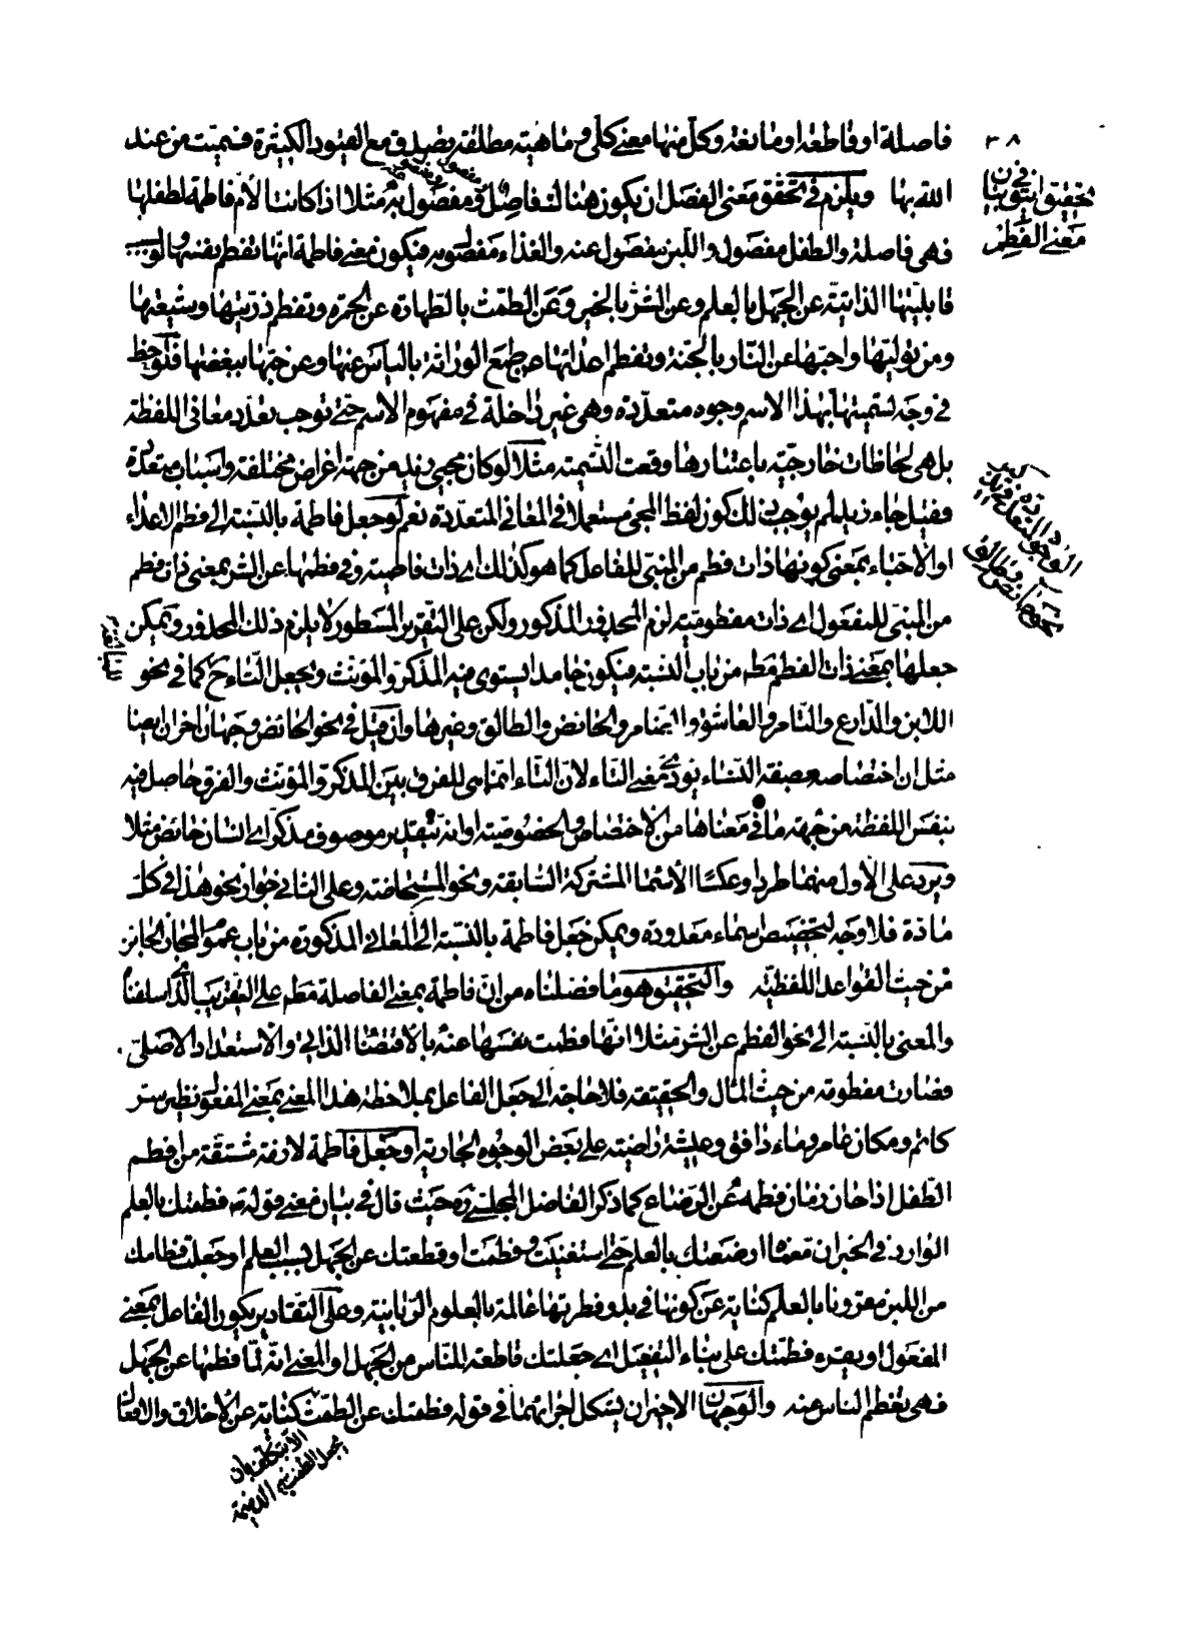 ٣٨
تحقيق انيق في بيان
معنى الفطم
فاصلة او قاطعة او مانعة وكل منها معنى كلي وماهية مطلقة يصدق مع القيود الكثيرة فسميت من عند
الله بها ويلزم في تحقق معنى الفصل ان يكون هناك فاصل ومفصول ومفصول عنه ومفصول به مثلا اذا كانت الأم فاطمة لطفلها
فهي فاصلة والطفل مفصول واللبن مفصول عنه والغذاء مفصول به فيكون معنى فاطمة انها تفطم نفسها
قابليتها الذاتية عن الجهل بالعلم وعن الشر بالخير وعن الطمث بالطهارة عن الحمرة وتفطم ذريتها وشيعتها
ومن تولاها واحبها عن النار بالجنة وتفطم اعدائها عن طمع الوراثة باليأس عنها وعن حبها ببغضها فلوحظ
في وجه تسميتها بهذا الاسم وجوه متعددة وهي غير داخلة في مفهوم الاسم حتى توجب تعدد معاني اللفظة
بل هي لحاظات خارجية باعتبارها وقعت التسمية مثلا لو كان مجيء زيد من جهة اغراض مختلفة واسباب متعددة
فقيل جاء زيد لم يوجب ذلك كون لفظ المجئ مستعملا في المعاني المتعددة نعم لو جعل فاطمة بالنسبة الى فطم الاعداء
او الأحباء بمعنى كونها ذات فطم من المبني للفاعل كما هو كذلك اي ذات فاطمية وفي فطمها عن الشر بمعنى ذات فطم
من المبني للمفعول اي ذات مفطومية لزم المحذور المذكور ولكن على التقرير المسطور لا يلزم ذلك المحذور ويمكن
جعلها بمعنى ذات الفطم مط من باب النسبة فيكون جامدا يستوي فيه المذكر والمؤنث ويجعل التاء ح كما في نحو
اللابن والدارع والتامر والعاشق والتمام والحائض والطالق وغيرها وان قيل في نحو الحائض وجهان اخران ايضا
مثل ان اختصاصه بصيغة النساء يؤدي معنى التاء لان التاء انما هي للفرق بين المذكر والمؤنث والفرق حاصل فيه
بنفس اللفظة من جهة ما في معناها من الاختصاص والخصوصية او انه بتقدير موصوف مذكر اي انسان حائض مثلا
ويرد على الأول منهما طردا وعكسا الأسماء المشتركة السابقة ونحو المستحاضة وعلى الثاني جواز نحو هذا في كل
مادة فلا وجه لتخصيص اسماء معدودة ويمكن جعل فاطمة بالنسبة الى المعاني المذكورة من باب عموم المجاز الجائز
من حيث القواعد اللفظية والتحقيق هو ما فصلناه من ان فاطمة بمعنى الفاصلة مط على التقريب الذي اسلفنا
والمعنى بالنسبة الى نحو الفطم عن الشر مثلا انها فطمت نفسها عنه بالاقتضاء الذاتي والاستعداد الاصلي
فصارت مفطومة من حيث المآل والحقيقة فلا حاجة الى جعل الفاعل بملاحظة هذا المعنى بمعنى المفعول نظير سر
كاتم ومكان عامر وماء دافق وعيشة راضية على بعض الوجوه الجارية او جعل فاطمة لازمة مشتقة من افطم
الطفل اذا حان زمان فطمه عن الرضاع كما ذكر الفاضل المجلسي ره حيث قال في بيان معنى قوله فطمتك بالعلم
الوارد في الخبر ان معناه ارضعتك بالعلم حتى استغنيت وفطمت او قطعتك عن الجهل بسبب العلم او جعلت فطامك
من اللبن مقرونا بالعلم كناية عن كونها في بدو فطرتها عالمة بالعلوم الربانية وعلى التقادير يكون الفاعل بمعنى
المفعول او يقرء فطمتك على بناء التفعيل اي جعلتك قاطعة للناس من الجهل او المعنى انه لما فطمها عن الجهل
فهي تفطم الناس عنه والوجهان الاخيران يشكل اجرائهما في قوله فطمتك عن الطمث كناية عن الاخلاق والافعال
الا بتكلف بان
يجعل الطمث
الذميمة